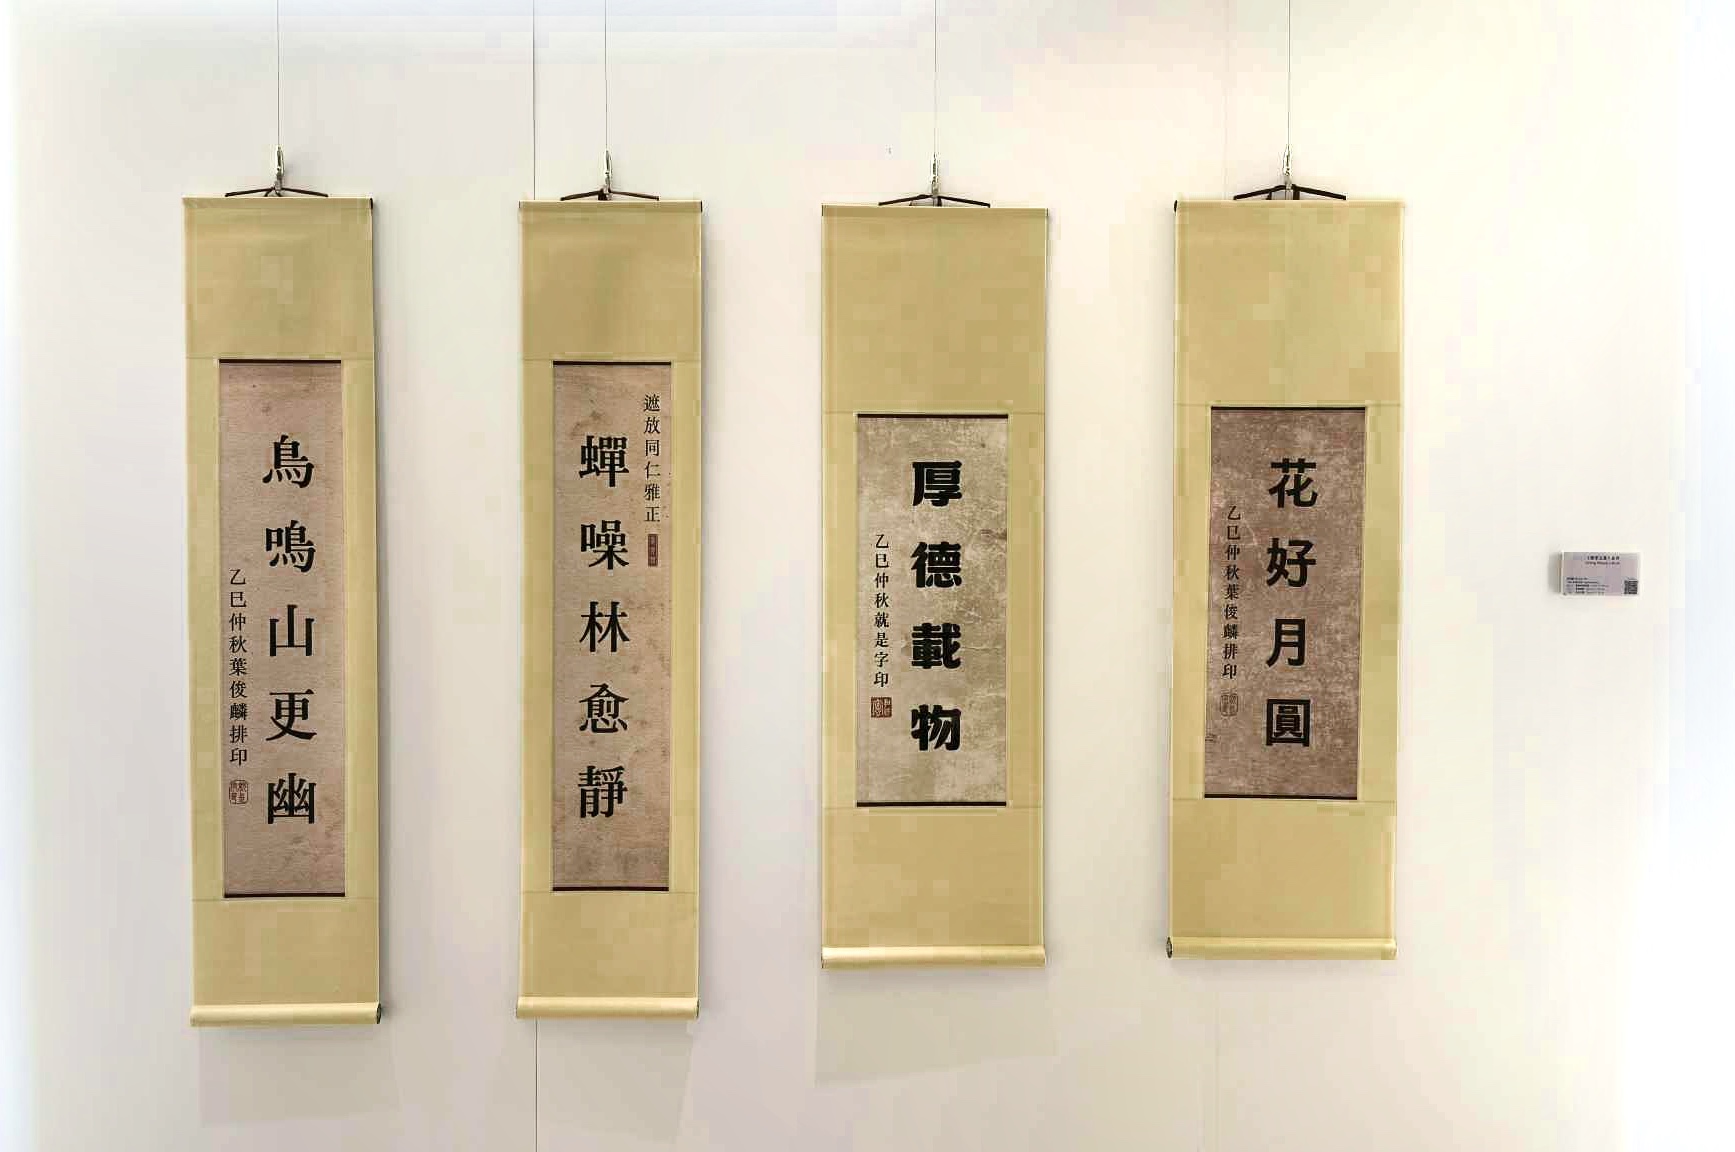 遮放同仁雅正
蟬噪林愈靜
鳥鳴山更幽
乙巳仲秋葉俊麟排印
厚德載物
乙巳仲秋就是字印
花好月圓
乙巳仲秋葉俊麟排印